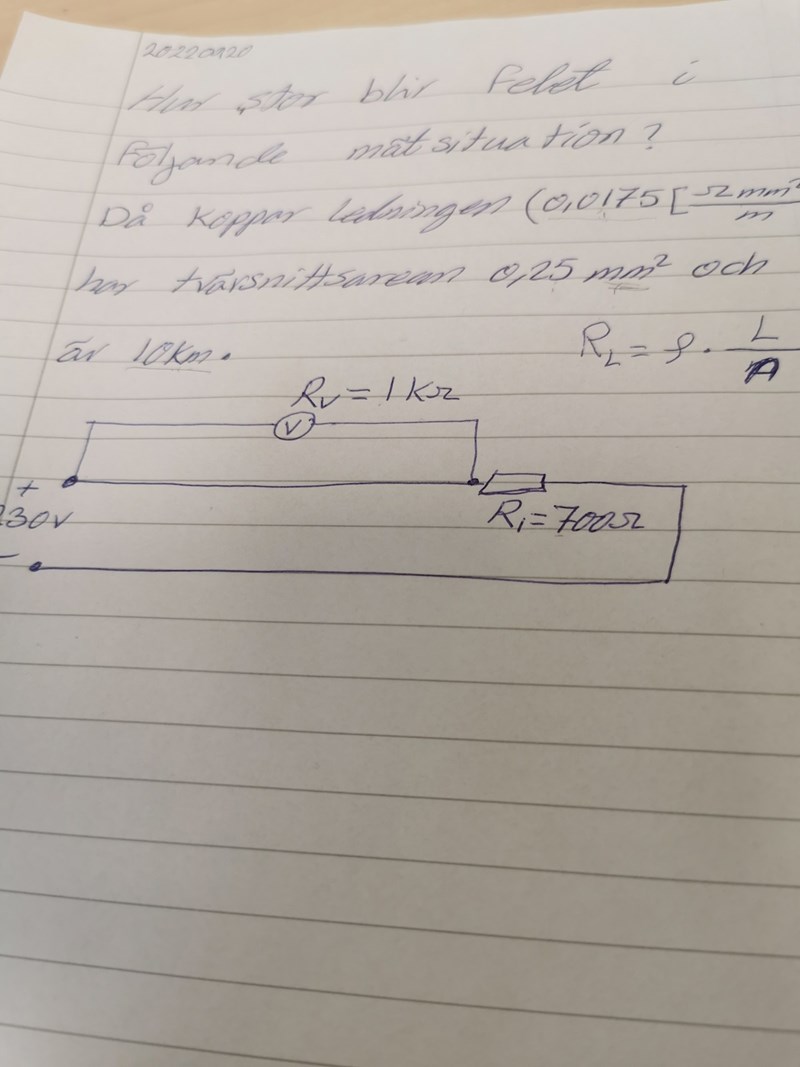 20220920
Hur stor blir felet i
Följande mätsituation?
Då koppar ledningen (0,0175 [Ωmm²/m
har tvärsnittsarean 0,25 mm² och
är 10km.
R_L = ρ · L/A
Rv = 1kΩ
V
+
230V
R₁=700Ω
-